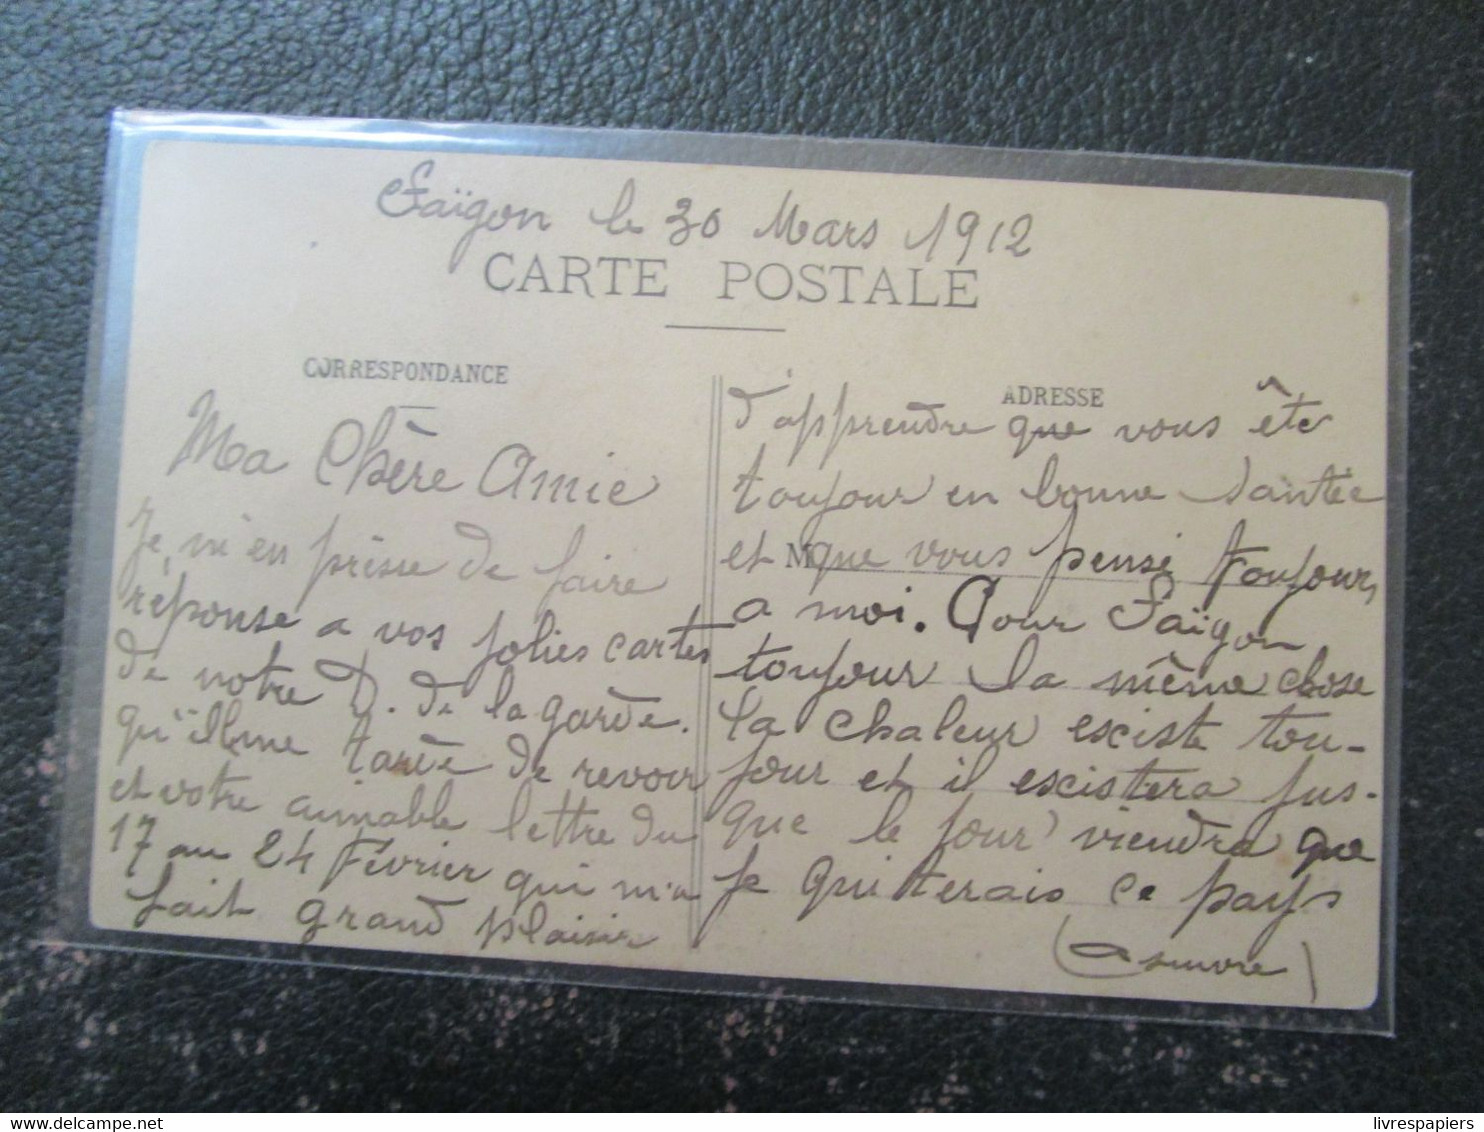 Saïgon le 30 Mars 1912
CARTE POSTALE
CORRESPONDANCE
Ma Chère Amie
Je m'en prisse de faire
réponse a vos jolies cartes
de notre D. de la garde.
qu'il me tarde de revoir
et votre aimable lettre du
17 au 24 Février qui m'a
fait grand plaisir
ADRESSE
d'apprendre que vous ête
toujour en bonne santée
et que vous pensé toujours
M
a moi. Pour Saïgon
toujour la même chose
la chaleur esciste tou-
jour et il escistera jus-
que le jour viendra que
je quiterais ce pays
(a suivre)
livrespapiers
delcampe.net